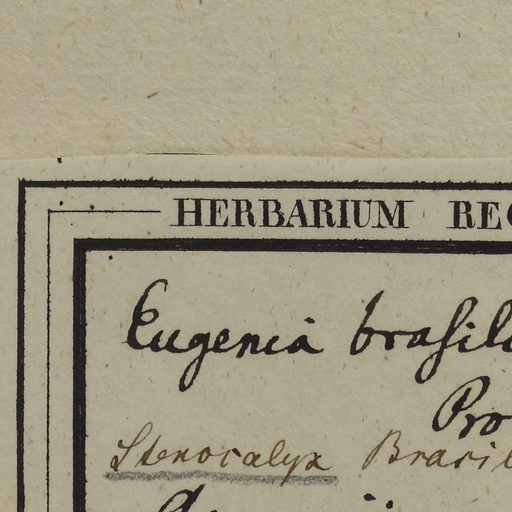 HERBARIUM REG
Eugenia brasili
Pro
Stenocalyx Brasil